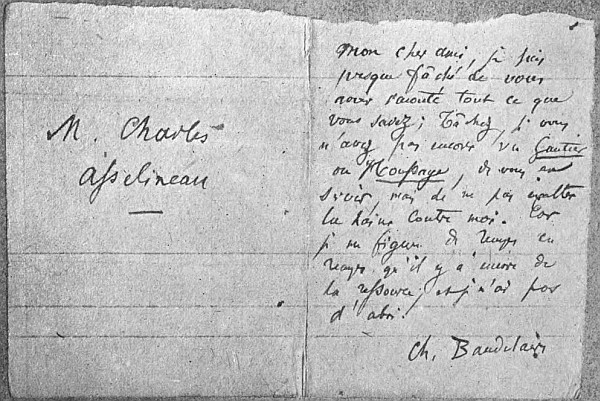 M. Charles
Asselineau
Mon cher ami, je suis
presque fâché de vous
avoir raconté tout ce que
vous savez; tâchez, si vous
n'avez pas encore vu Gautier
ou Houssaye, de vous en
servir, mais de ne pas exalter
la haine contre moi. Car
je me figure de temps en
temps qu'il y a encore de
la ressource, et je n'ai pas
d'abri.
Ch. Baudelaire